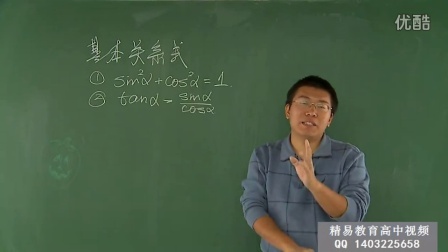 优酷
基本关系式
① sin²α+cos²α=1.
② tanα=sinα/cosα
精易教育高中视频
QQ 1403225658